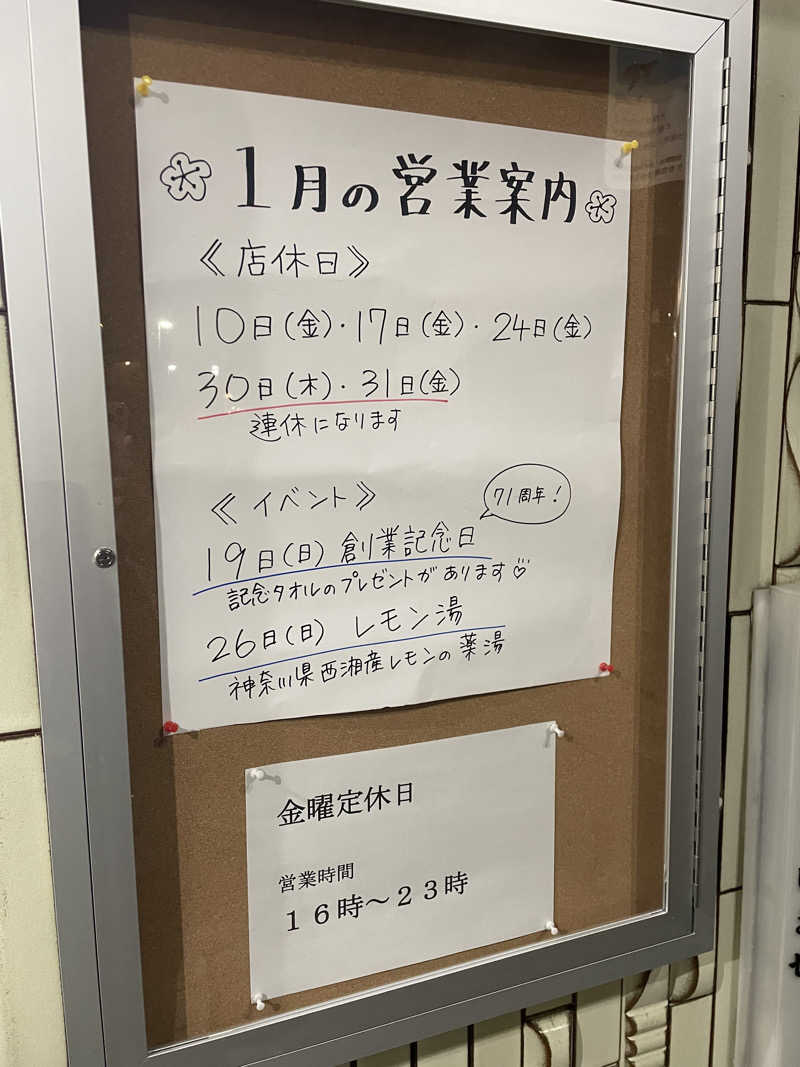 1月の営業案内
《店休日》
10日(金)・17日(金)・24日(金)
30日(木)・31日(金)
連休になります
《イベント》
71周年!
19日(日) 創業記念日
記念タオルのプレゼントがあります♡
26日(日) レモン湯
神奈川県西湘産レモンの薬湯
金曜定休日
営業時間
16時〜23時